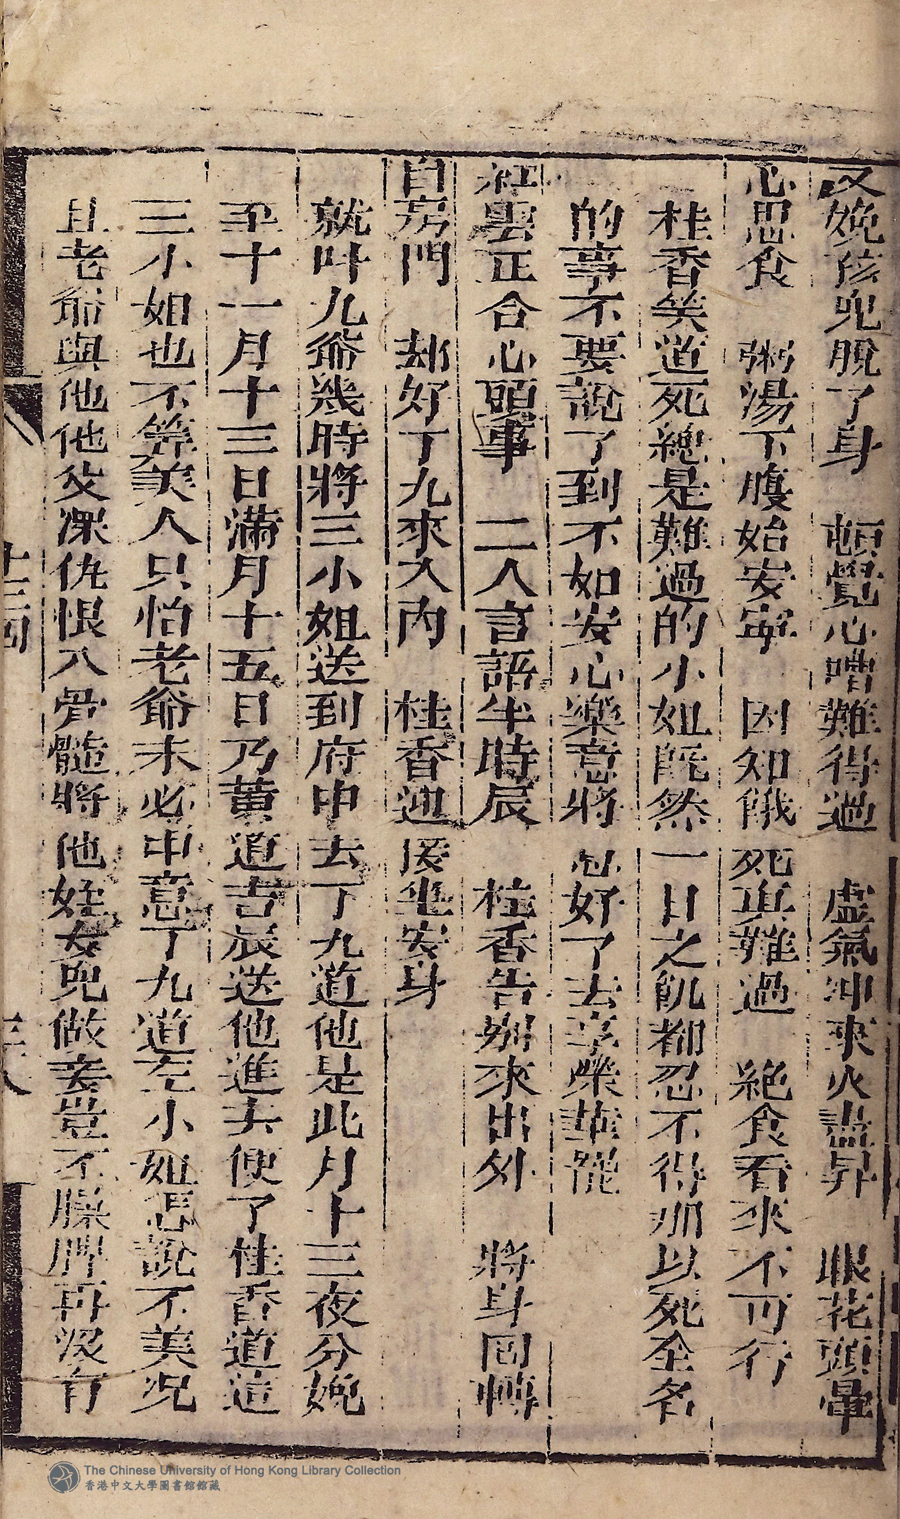 又娩孩兒脫了身　頓覺心嘈難得過　虛氣冲來火盡昇　眼花頭暈
心思食　粥湯下腹始安寧　因知餓死真難過　絕食看來不可行
桂香笑道死總是難過的小姐既然一日之飢都忍不得那以死全名
的事不要說了到不如安心樂意將　好了去享榮華罷
紅雲正合心頭事　二人言語半時辰　桂香告別來出外　將身回轉
自房門　却好丁九來入內　桂香迎接坐安身
就叫九爺幾時將三小姐送到府中去丁九道他是此月十三夜分娩
至十一月十三日滿月十五日乃黄道吉辰送他進去便了桂香道這
三小姐也不算美人只怕老爺未必中意丁九道左小姐怎說不美况
且老爺與他他父深仇恨入骨髓將他姪女兒做妾豈不臊脾再沒有
十三回
三八
The Chinese University of Hong Kong Library Collection
香港中文大學圖書館館藏